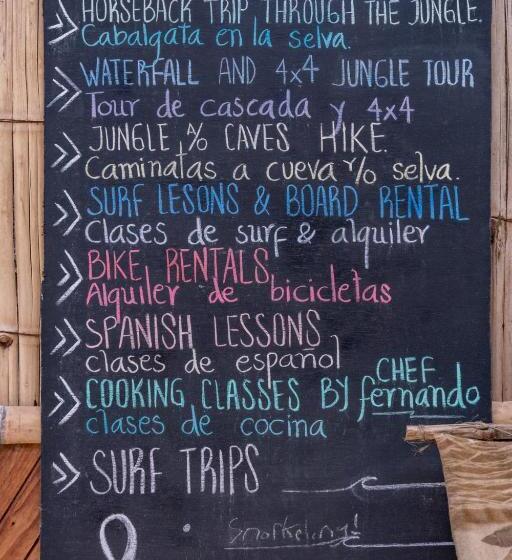 HORSEBACK TRIP THROUGH THE JUNGLE.
Cabalgata en la selva.
WATERFALL AND 4x4 JUNGLE TOUR
Tour de cascada y 4x4
JUNGLE %  CAVES HIKE.
Caminatas a cueva y/o selva.
SURF LESONS & BOARD RENTAL
Clases de surf & alquiler
BIKE RENTALS
Alquiler de bicicletas
SPANISH LESSONS
clases de español
COOKING CLASSES BY CHEF fernando
clases de cocina
SURF TRIPS